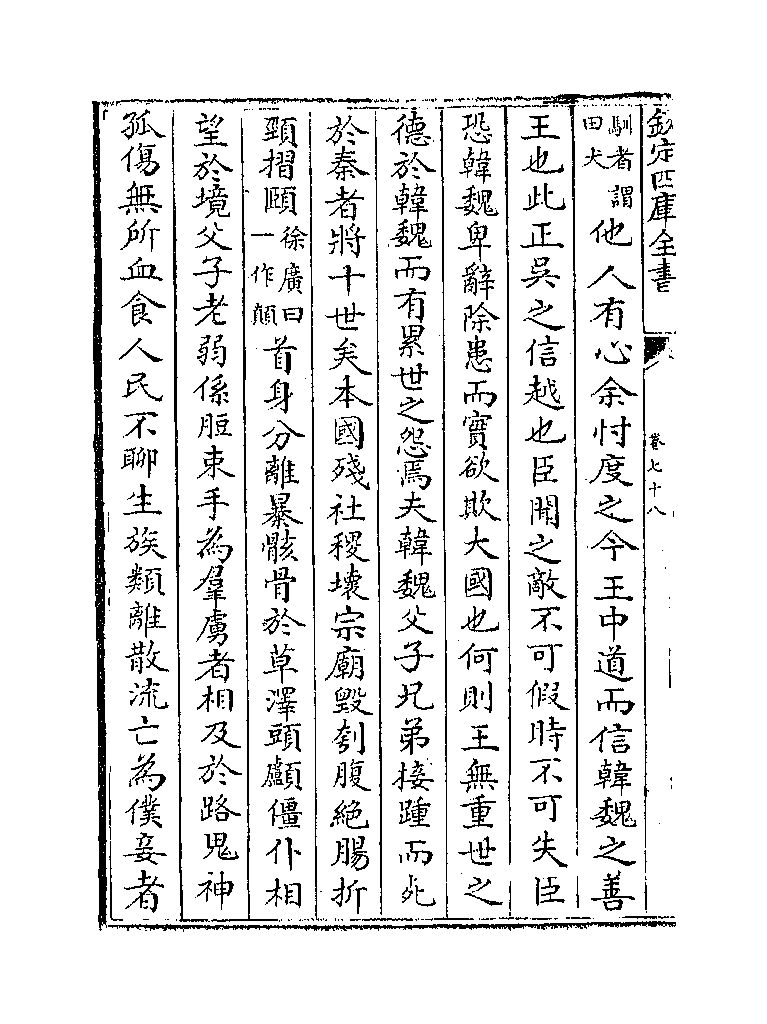 欽定四庫全書
卷七十八
馴者謂田犬他人有心余忖度之今王中道而信韓魏之善
王也此正吳之信越也臣聞之敵不可假時不可失臣
恐韓魏卑辭除患而實欲欺大國也何則王無重世之
德於韓魏而有累世之怨焉夫韓魏父子兄弟接踵而死
於秦者將十世矣本國殘社稷壞宗廟毀刳腹絶腸折
頸摺頤徐廣曰一作顛首身分離暴骸骨於草澤頭顱僵仆相
望於境父子老弱係脰束手為羣虜者相及於路鬼神
孤傷無所血食人民不聊生族類離散流亡為僕妾者